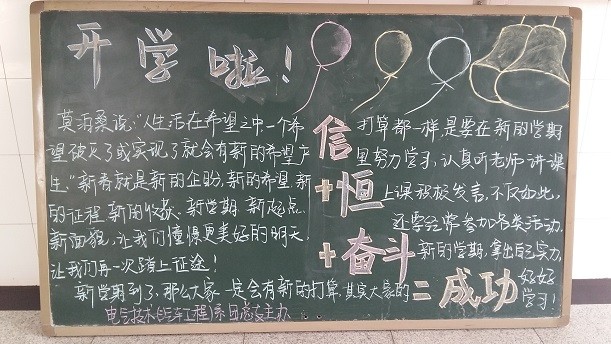 开学啦！
莫泊桑说："人生活在希望之中，一个希
望破灭了或实现了就会有新的希望产
生。"新春就是新的企盼，新的希望，新
的征程，新的收获。新学期，新起点，
新面貌，让我们憧憬更美好的明天，
让我们再一次踏上征途！
新学期到了，那么大家一定会有新的打算，其实大家的
打算都一样，是要在新的学期
里努力学习，认真听老师讲课
上课积极发言，不仅如此，
还要经常参加各类活动。
新的学期，拿出自己实力，
好好
学习！
信
+恒
+奋斗
=成功
电气技术(汽车工程)系团总支主办